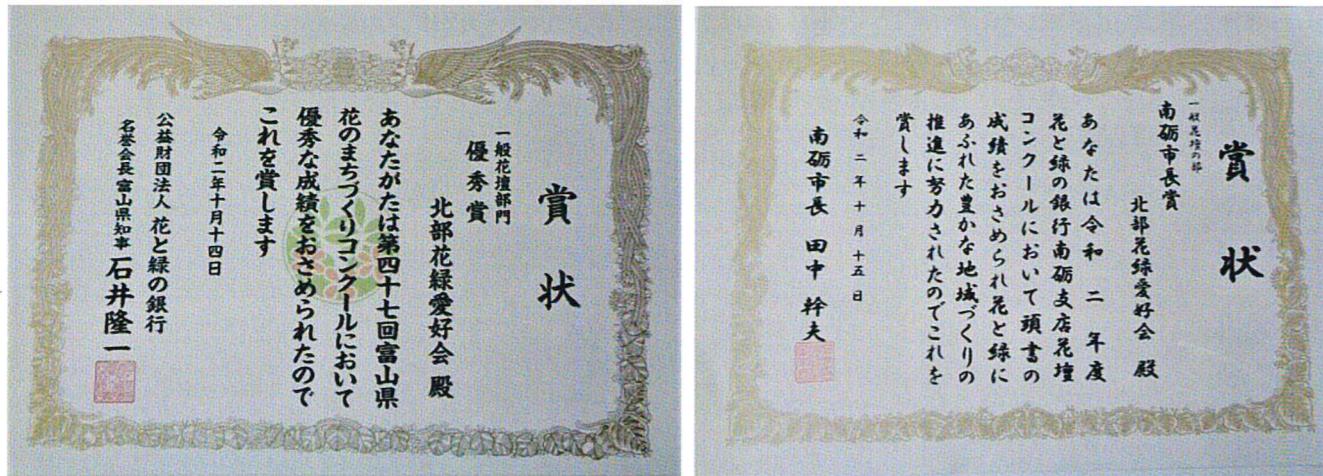 賞状
一般花壇部門
優秀賞
北部花緑愛好会 殿
あなたがたは第四十七回富山県
花のまちづくりコンクールにおいて
優秀な成績をおさめられたので
これを賞します
令和二年十月十四日
公益財団法人 花と緑の銀行
名誉会長 富山県知事 石井隆一
賞状
一般花壇の部
南砺市長賞
北部花緑愛好会 殿
あなたは令和二年度
花と緑の銀行南砺支店花壇
コンクールにおいて頭書の
成績をおさめられ花と緑に
あふれた豊かな地域づくりの
推進に努力されたのでこれを
賞します
令和二年十月十五日
南砺市長 田中幹夫